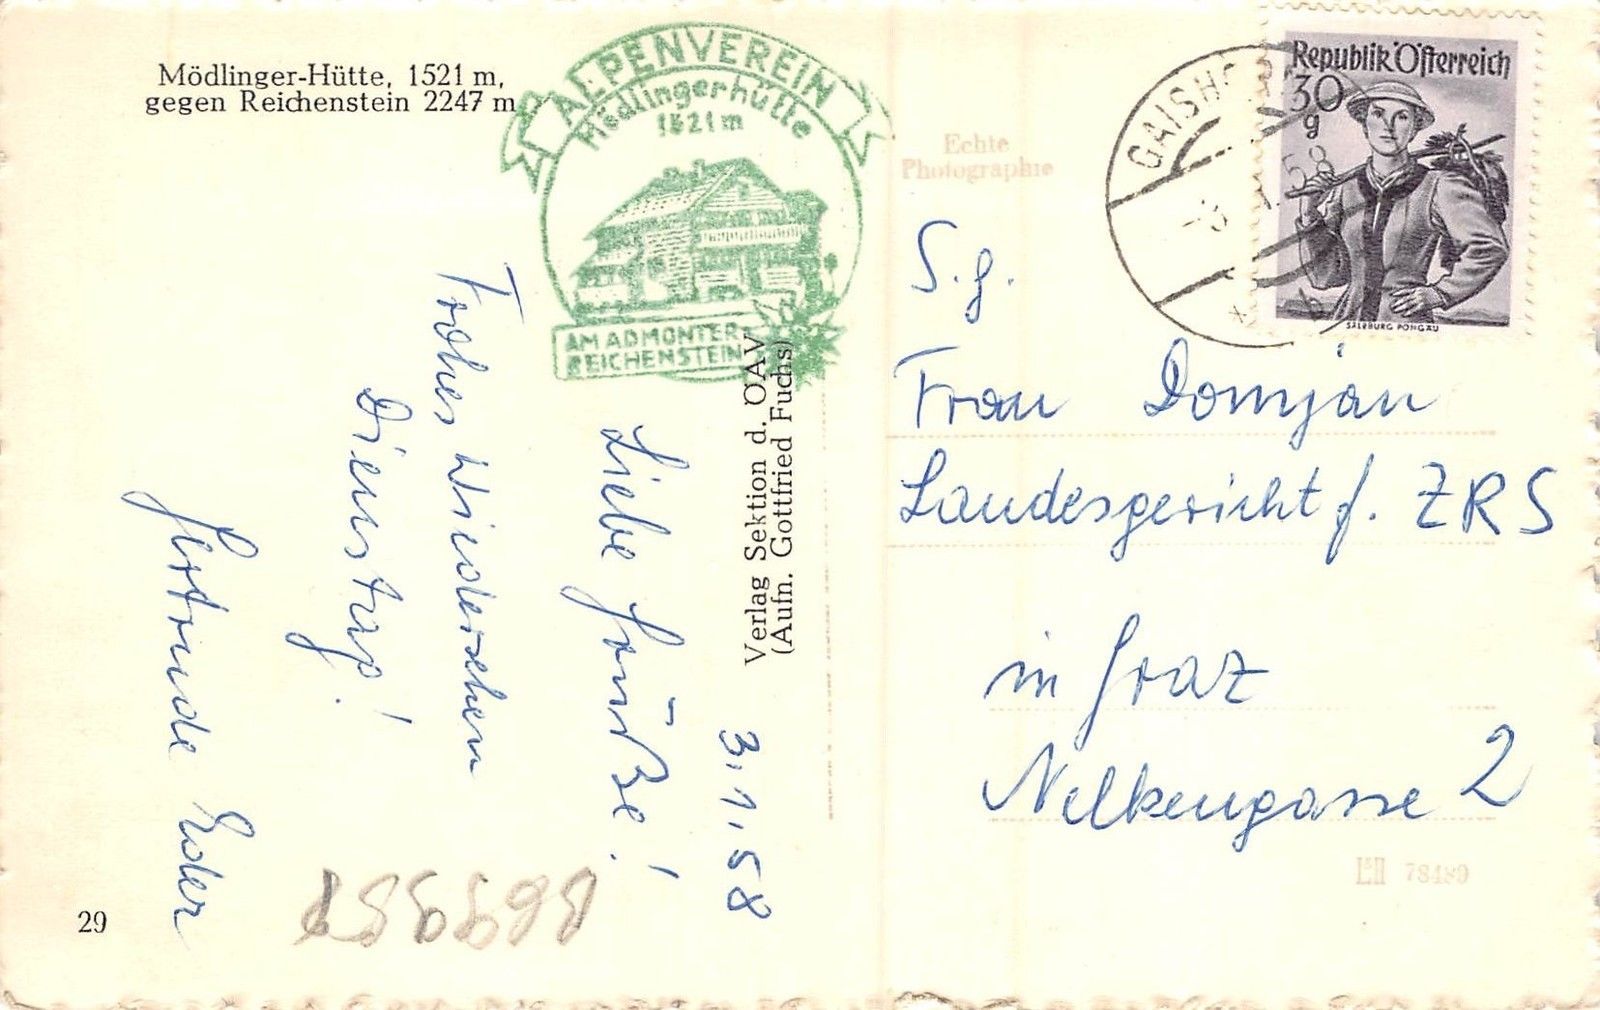 Mödlinger-Hütte, 1521 m,
gegen Reichenstein 2247 m
ALPENVEREIN
Mödlingerhütte
1521 m
AM ADMONTER
REICHENSTEIN
Echte
Photographie
GAISHO
58
Republik Österreich
30
g
SALZBURG PONGAU
Verlag Sektion d. ÖAV
(Aufn. Gottfried Fuchs)
3.1.58
Liebe Grüße!
Frohes Wiedersehen
Dienstag!
Gertrude Eder
S.g.
Frau Domjan
Landesgericht f. ZRS
in Graz
Nelkengasse 2
78489
29